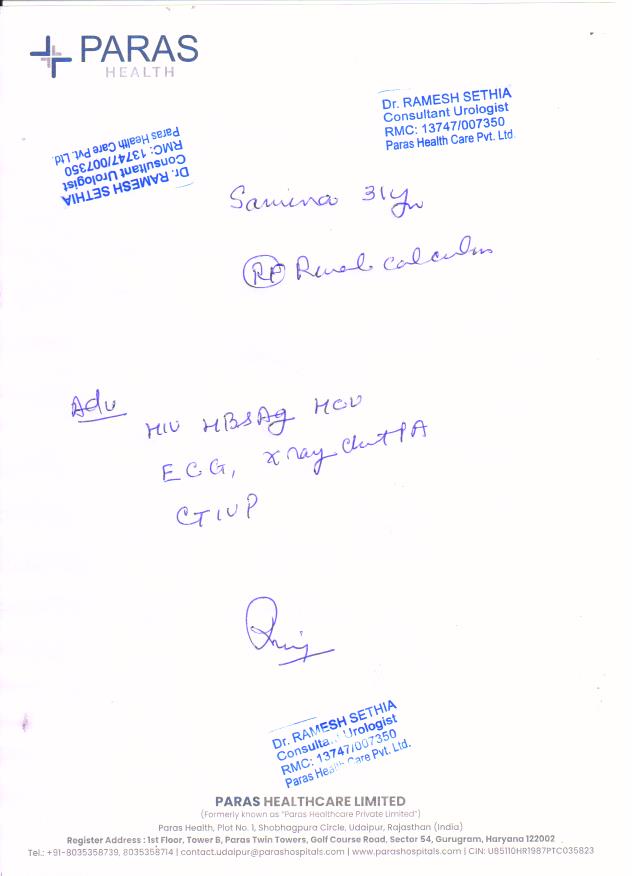 PARAS
HEALTH
Dr. RAMESH SETHIA
Consultant Urologist
RMC: 13747/007350
Paras Health Care Pvt. Ltd.
Dr. RAMESH SETHIA
Consultant Urologist
RMC: 13747/007350
Paras Health Care Pvt. Ltd.
Samina 31 yr
Renal calculus
Adv
HIV HBsAg HCV
ECG, x ray chest PA
CT IVP
Dr. RAMESH SETHIA
Consulta Urologist
RMC: 13747/007350
Paras Health Care Pvt. Ltd.
PARAS HEALTHCARE LIMITED
(Formerly known as "Paras Healthcare Private Limited")
Paras Health, Plot No. 1, Shobhagpura Circle, Udaipur, Rajasthan (India)
Register Address : 1st Floor, Tower B, Paras Twin Towers, Golf Course Road, Sector 54, Gurugram, Haryana 122002
Tel.: +91-8035358739, 8035358714 | contact.udaipur@parashospitals.com | www.parashospitals.com | CIN: U85110HR1987PTC035823